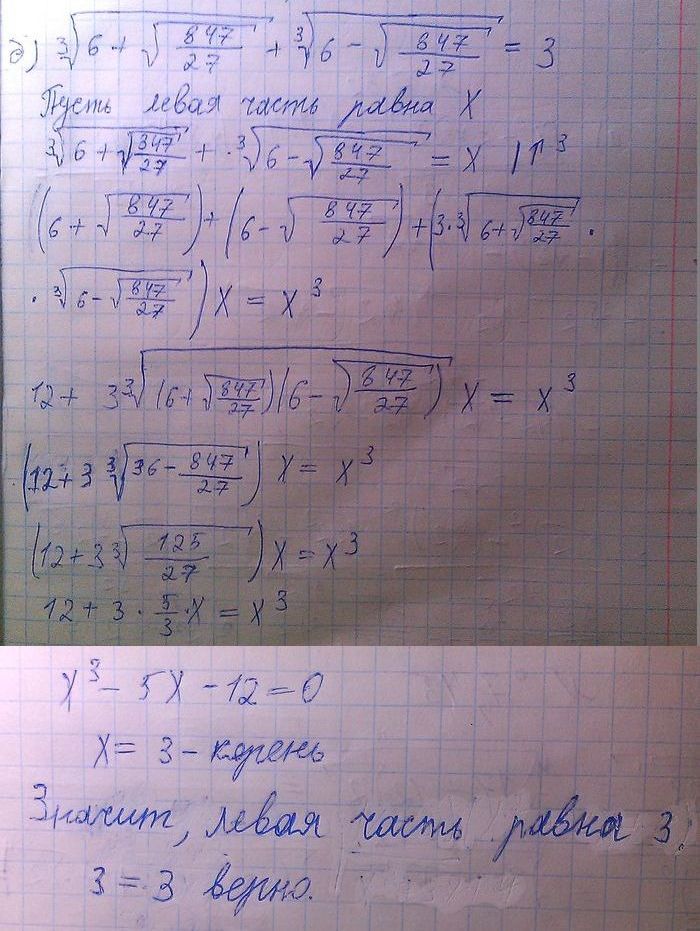 б) ∛(6 + √(847/27)) + ∛(6 − √(847/27)) = 3
Пусть левая часть равна X
∛(6 + √(847/27)) + ·∛(6 − √(847/27)) = X |↑³
(6 + √(847/27)) + (6 − √(847/27)) + (3·∛(6 + √(847/27)) ·
· ∛(6 − √(847/27))) X = X³
12 + 3∛((6 + √(847/27))(6 − √(847/27))) X = X³
(12 + 3 ∛(36 − 847/27)) X = X³
(12 + 3∛(125/27)) X = X³
12 + 3 · 5/3 · X = X³
X³ − 5X − 12 = 0
X = 3 – корень
Значит, левая часть равна 3.
3 = 3 верно.